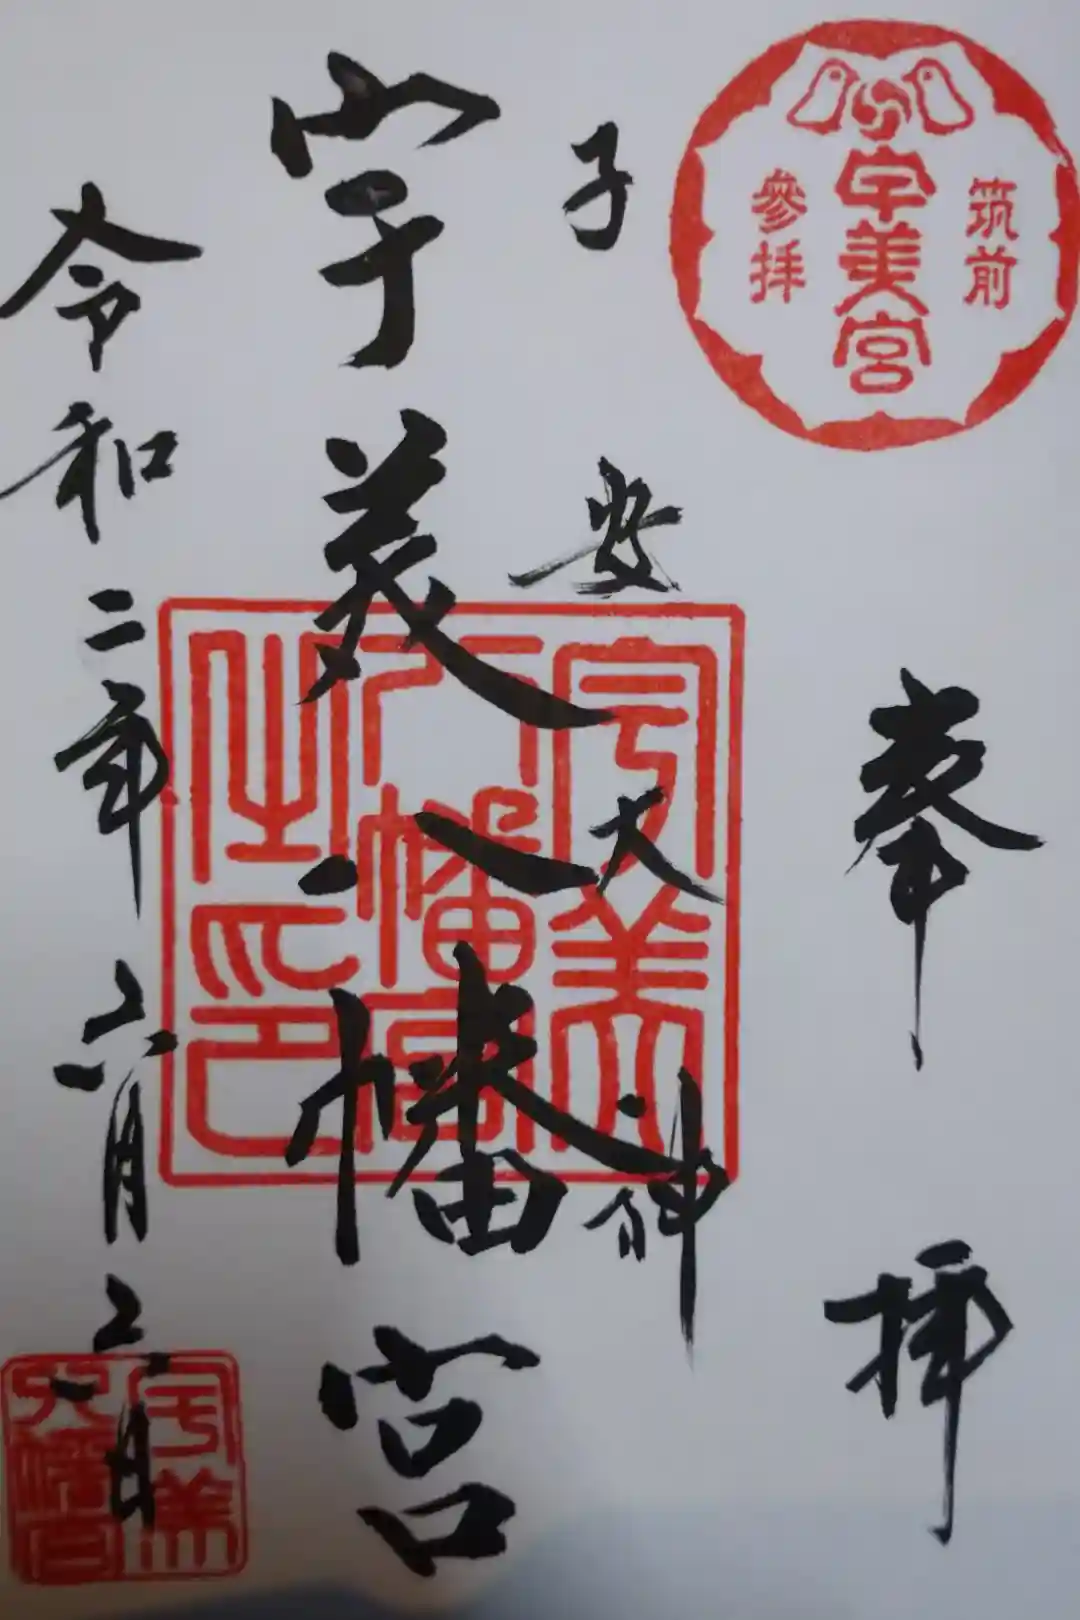 筑前
宇美宮
參拝
奉拝
子安大神
宇美八幡宮
宇美
八幡宮
之印
令和二年六月日
宇美
八幡宮